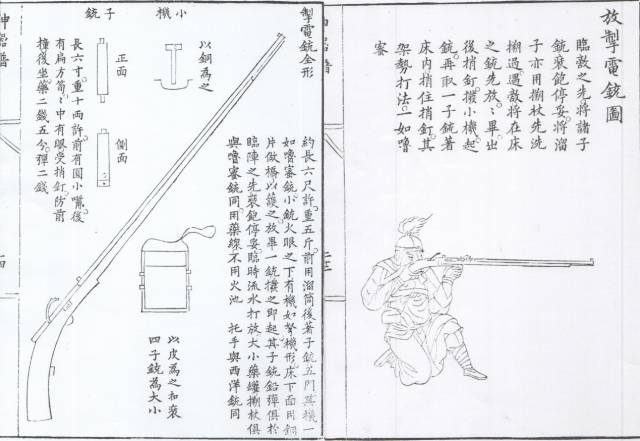 放掣電銃圖
臨敵之先將諸子
銃裝飽停妥將溜
子亦用搠杖先洗
搠過遇敵將在床
之銃先放〻畢出
後捎釘撥小機起
銃再取一子銃著
床內捎住捎釘其
架勢打法一如嚕
蜜
掣電銃全形
約長六尺許重五斤前用溜筒後著子銃五門其機一
如嚕蜜銃小銃火眼之下有機如弩機形床下面用銅
片做橋以護之放畢一銃撥之即起其子銃鉛彈俱於
臨陣之先裝飽停妥臨時流水打放大小藥罐搠杖俱
與嚕蜜銃同用藥線不用火池 托手與西洋銃同
小機
以銅為之
以皮為之和裝
四子銃為大小
子銃
正面
側面
長六寸重十兩許前有圓小嘴後
有扁方笋〻中有眼受捎釘防前
撞後坐藥二錢五分彈二錢